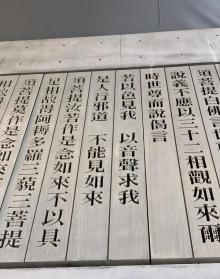 須菩提白佛
說義不應以三十二相觀如來爾
時世尊而說偈言
若以色見我 以音聲求我
是人行邪道 不能見如來
須菩提汝若作是念如來不以具
足相故得阿耨多羅三藐三菩提
須菩提莫作是念如來
相故得阿